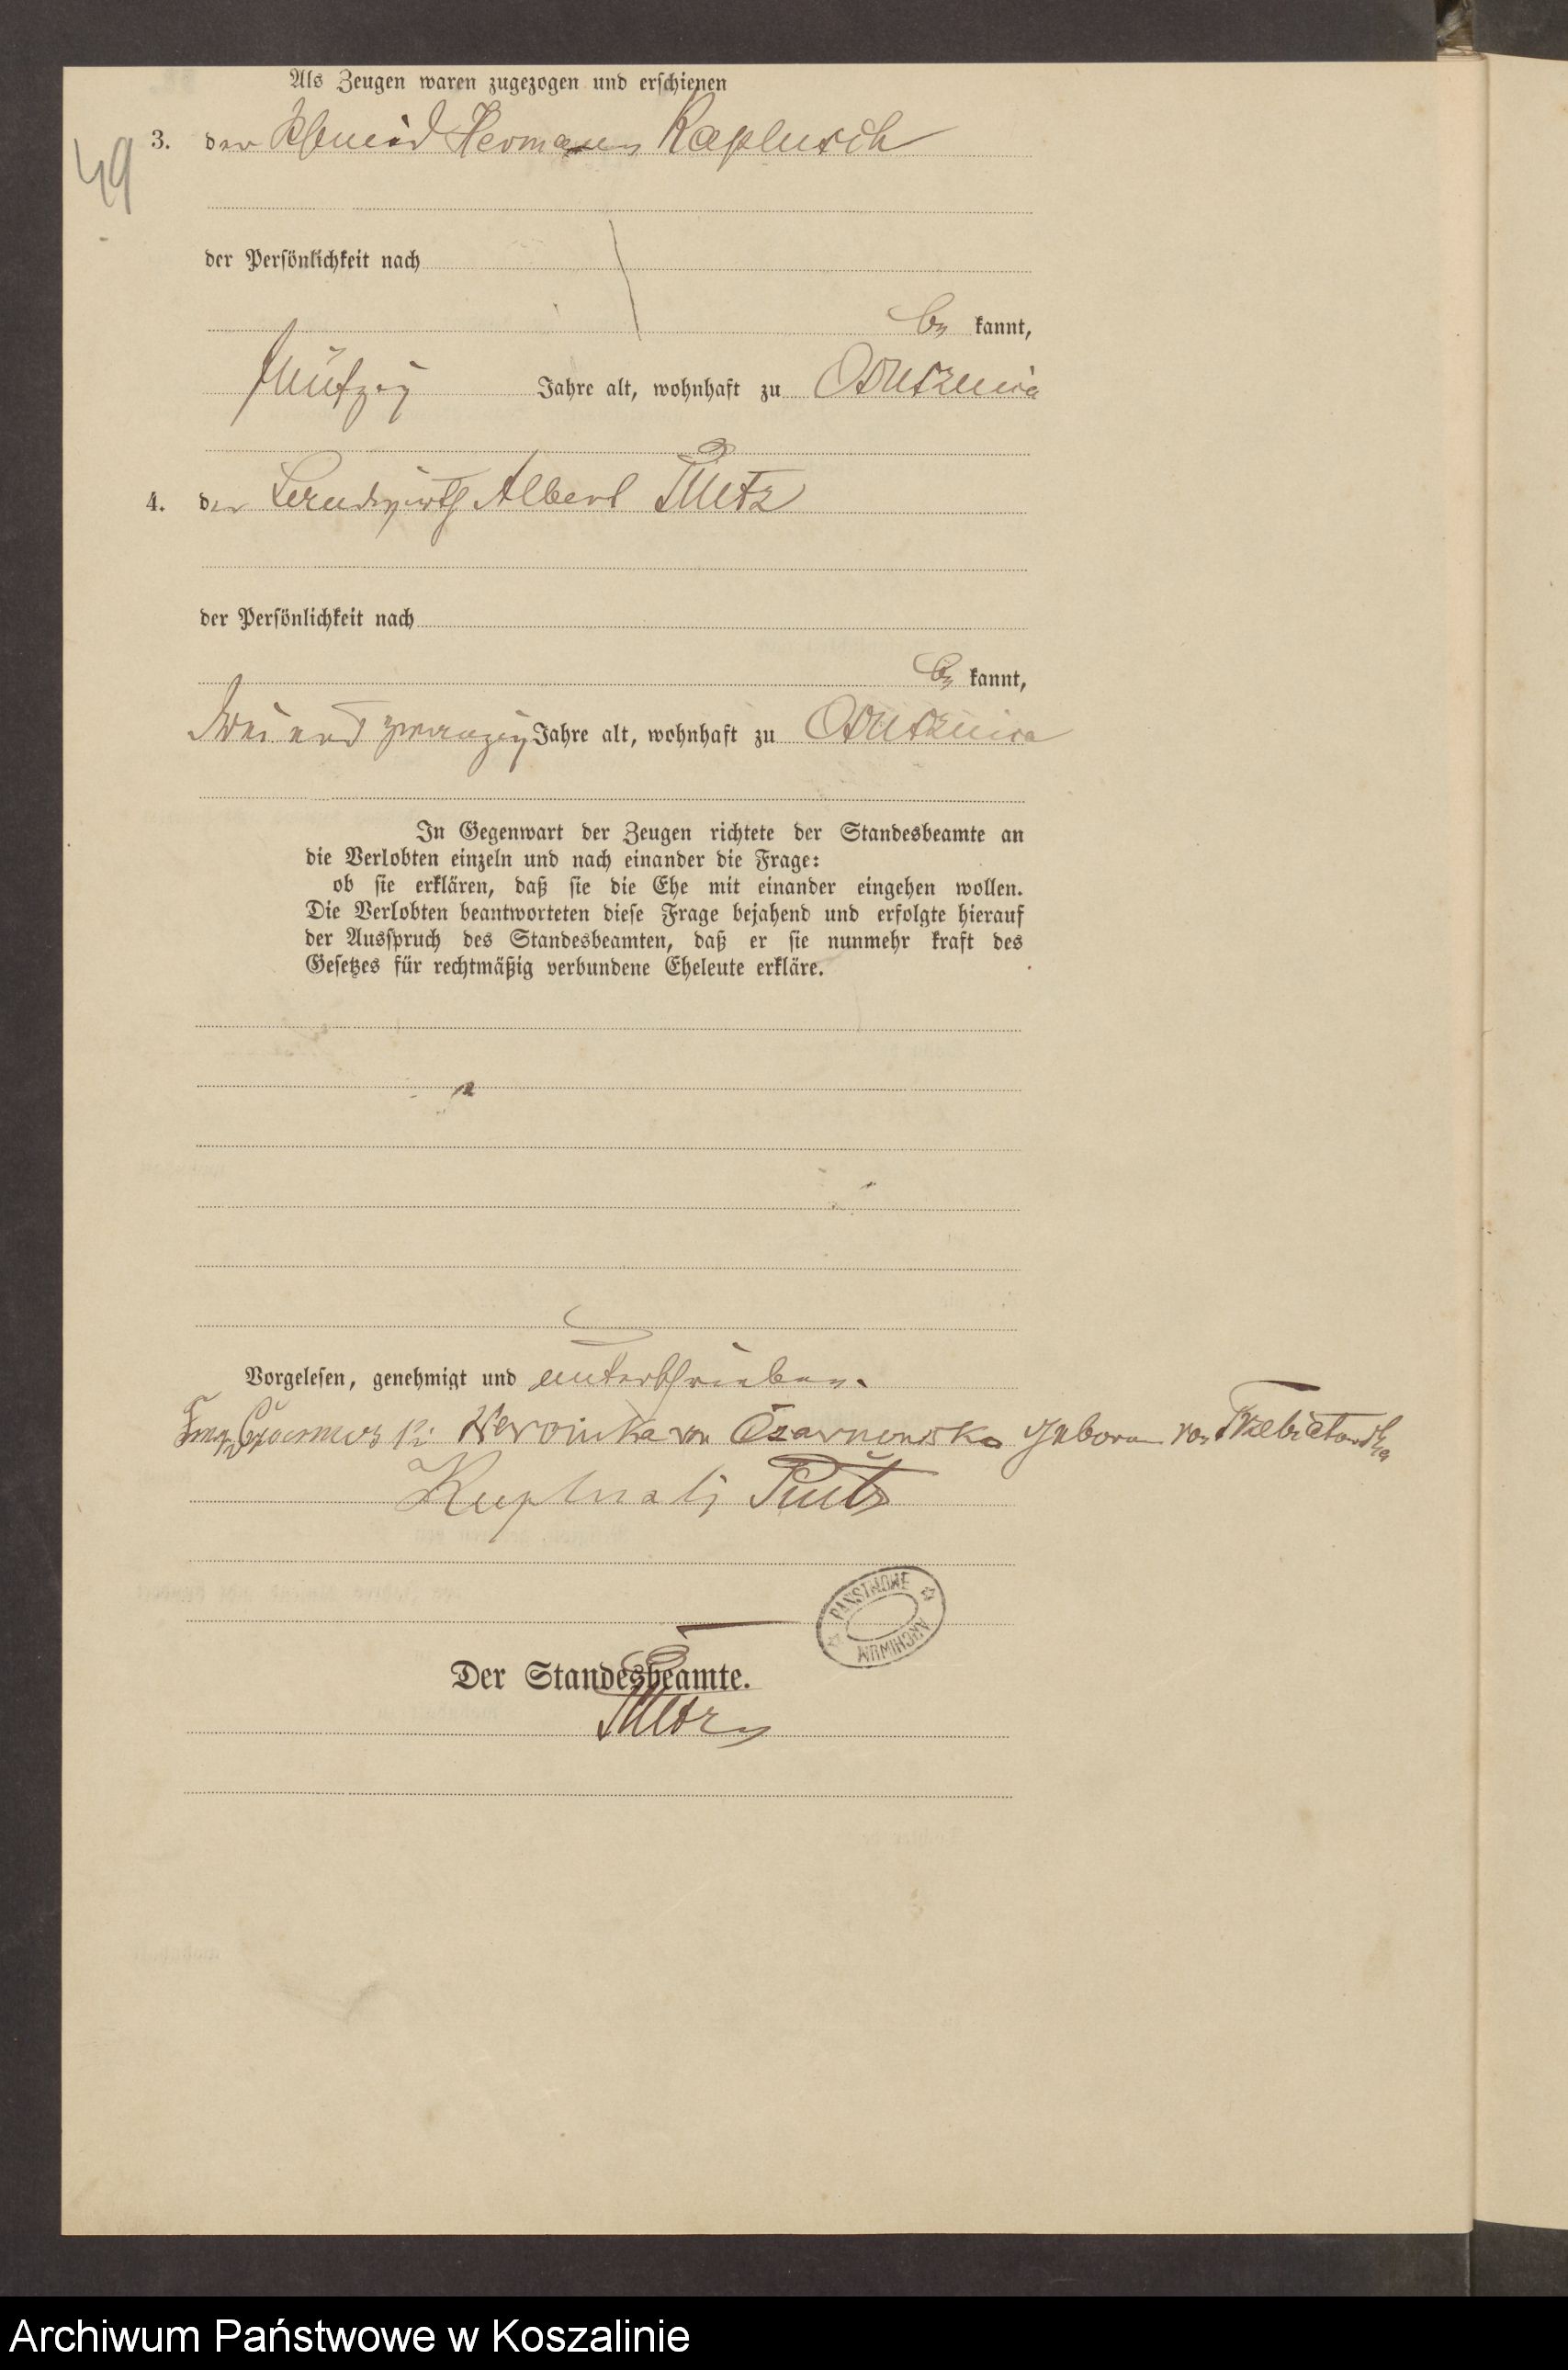 Als Zeugen waren zugezogen und erschienen
49
3. der Schmied Hermann
der Persönlichkeit nach
be kannt,
Jahre alt, wohnhaft zu Ossusznica
4. der Landwirth Albert
der Persönlichkeit nach
be kannt,
und zwanzig Jahre alt, wohnhaft zu Ossusznica
In Gegenwart der Zeugen richtete der Standesbeamte an
die Verlobten einzeln und nach einander die Frage:
ob sie erklären, daß sie die Ehe mit einander eingehen wollen.
Die Verlobten beantworteten diese Frage bejahend und erfolgte hierauf
der Ausspruch des Standesbeamten, daß er sie nunmehr kraft des
Gesetzes für rechtmäßig verbundene Eheleute erkläre.
Vorgelesen, genehmigt und unterschrieben.
von Czarnowska geboren von Trzebiatowska
PAŃSTWOWE
ARCHIWUM
Der Standesbeamte.
Archiwum Państwowe w Koszalinie